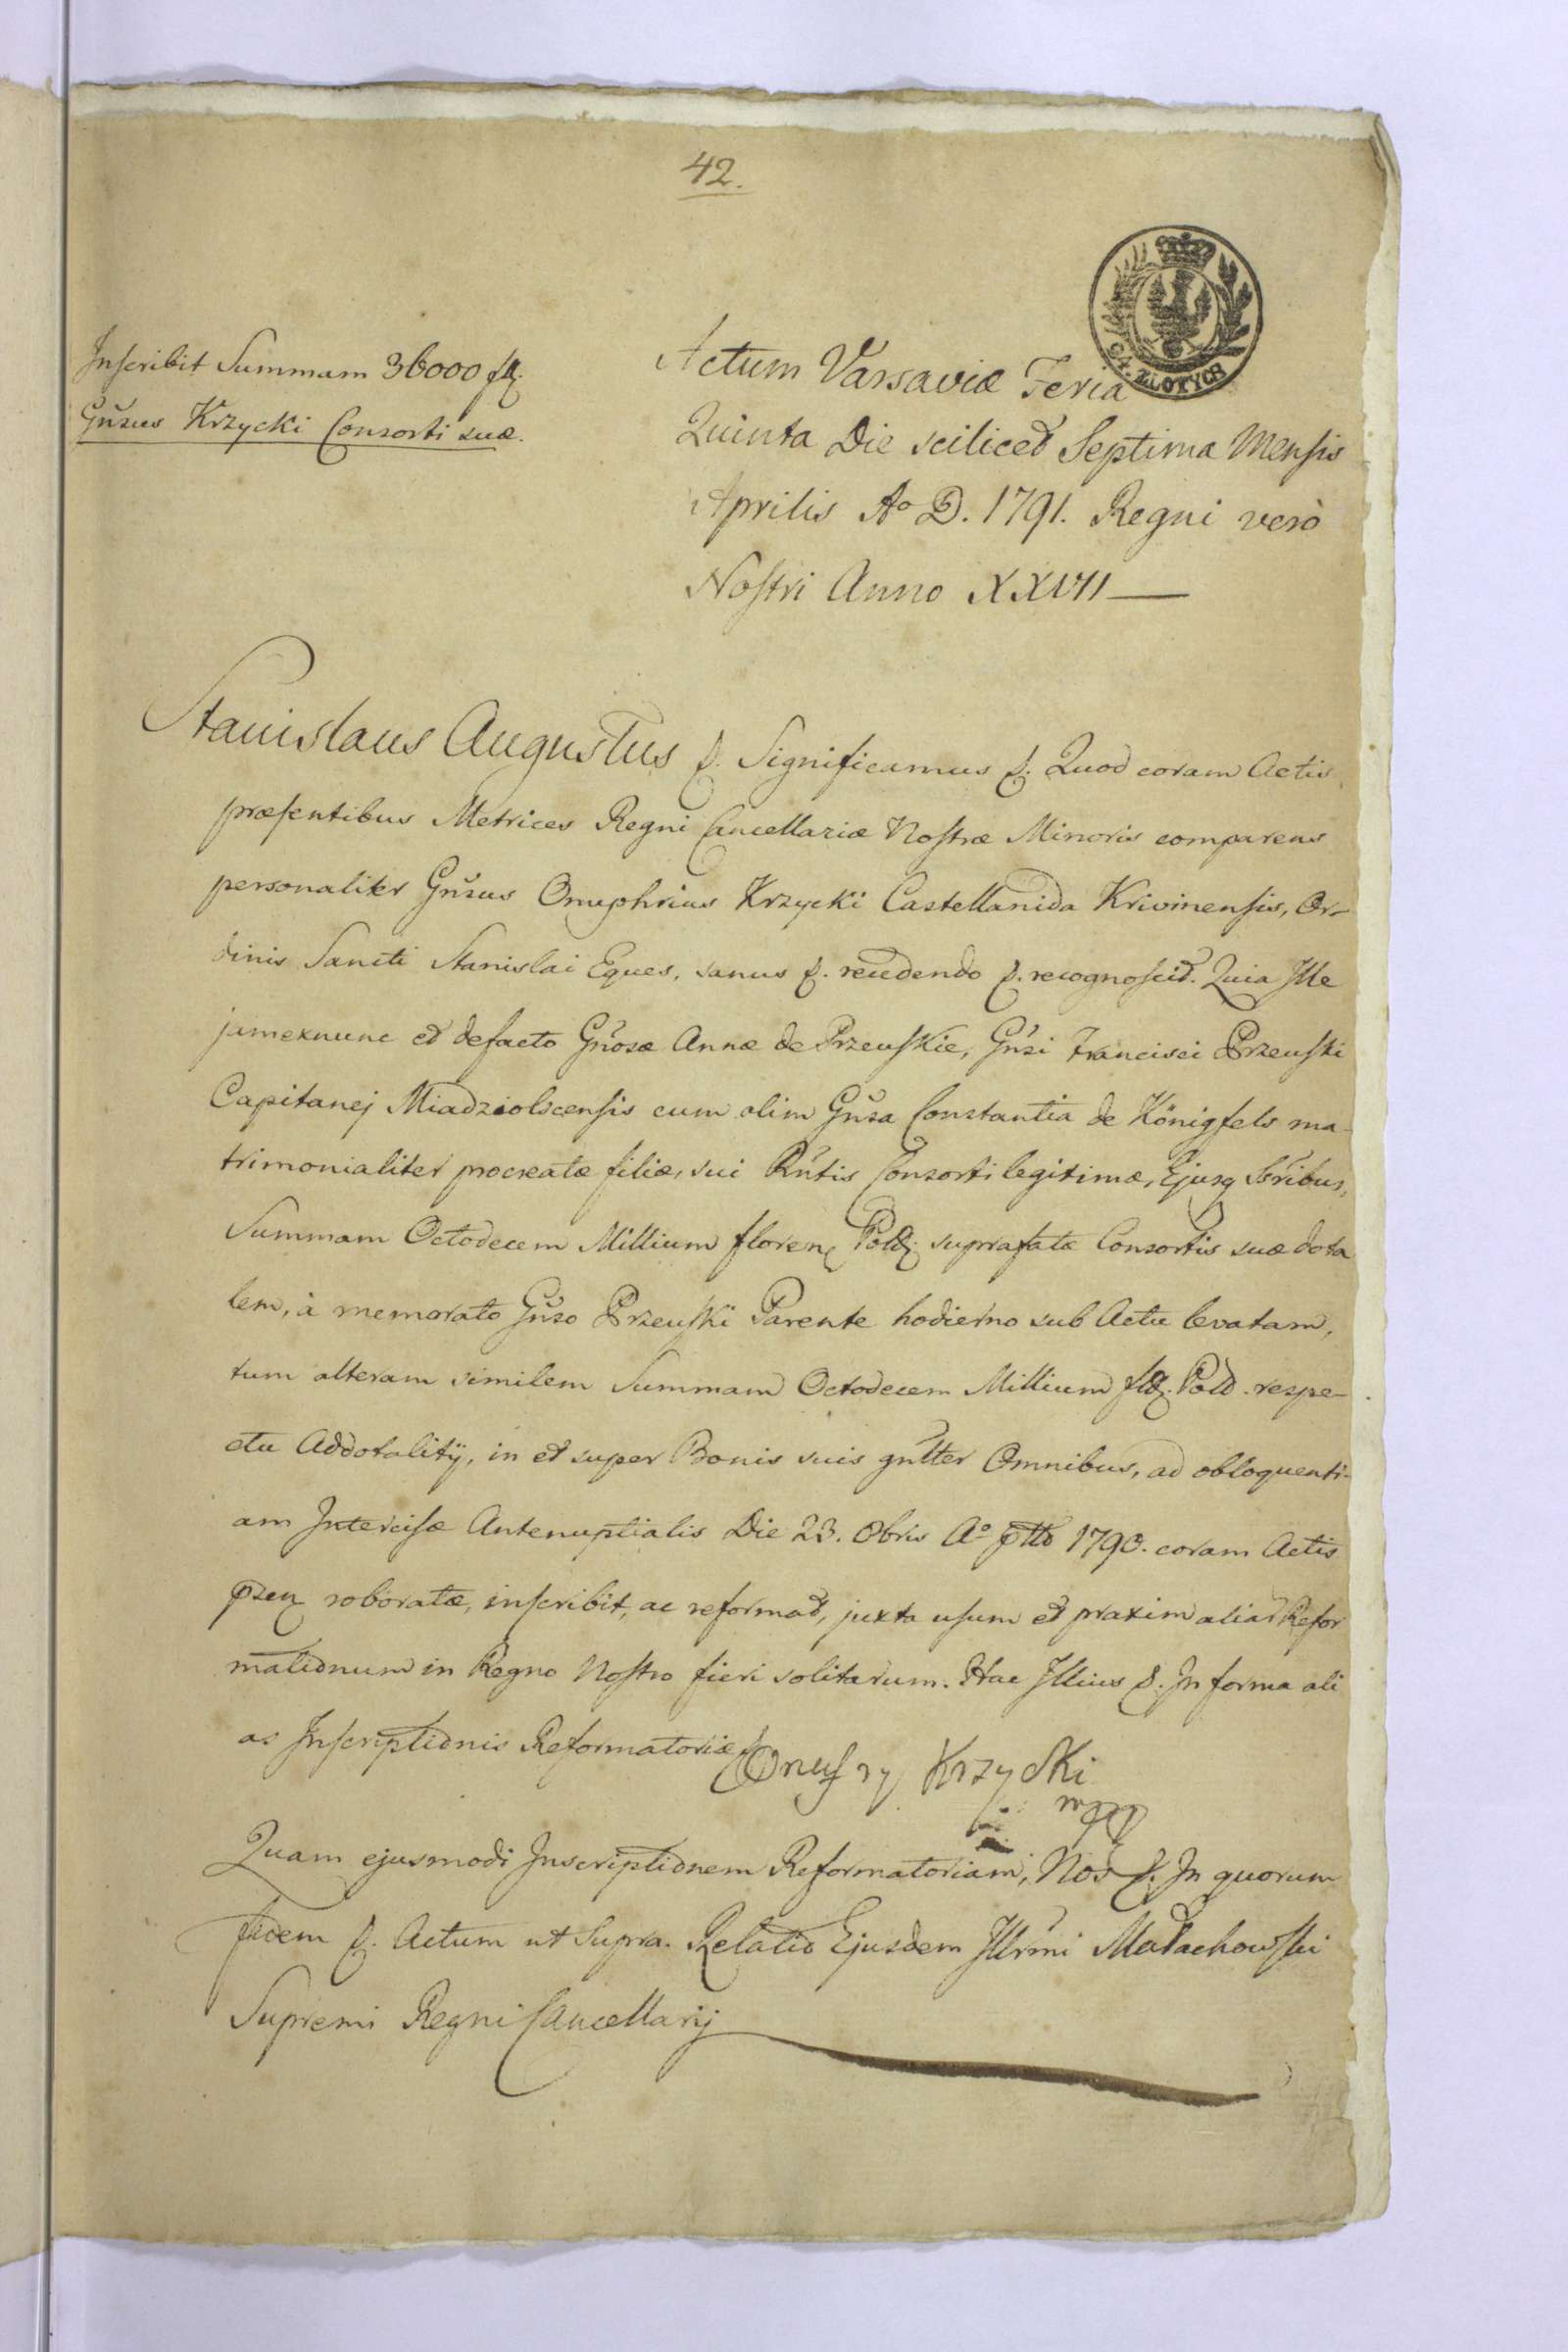 42.
Inscribit Summam 36000 fl.
Gnsus Krzycki Consorti suæ.
ZŁOTYCH
Actum Varsaviæ Feria
Quinta Die scilicet Septima Mensis
Aprilis Ao D. 1791. Regni verò
Nostri Anno XXVII
Stanislaus Augustus &. Significamus &. Quod coram Actis
præsentibus Metrices Regni Cancellariæ Nostræ Minoris comparens
personaliter Gnsus Onuphrius Krzycki Castellanida Krivinensis, Or-
dinis Sancti Stanislai Eques, sanus &. recedendo &. recognoscit. Quia Ille
jamexnunc et defacto Gnosæ Annæ de Przeuskie, Gnsi Francisci Przeuski
Capitanej Miadziolscensis cum olim Gnsa Constantia de Königfels ma-
trimonialiter procreatæ filiæ, sui Rntis Consorti legitimæ, Ejusq
Summam Octodecem Millium floren Pold suprafatæ Consortis suæ dota
lem, à memorato Gnso Przeuski Parente hodierno sub Actu levatam,
tum alteram similem Summam Octodecem Millium fl. Pold. respe-
ctu Addotalitij, in et super Bonis suis gnlter Omnibus, ad obloquenti-
am Intercisæ Antenuptialis Die 23. Obris Ao 1790. coram Actis
roboratæ, inscribit, ac reformat, juxta usum et praxim aliar Refor
mationum in Regno Nostro fieri solitarum. Hac Illius &. In forma ali
as Inscriptionis Reformatoriæ Onufry Krzycki
mpp
Quam ejusmodi Inscriptionem Reformatoriam, Nos &. In quorum
fidem &. Actum ut Supra. Relatio Ejusdem Illrmi Małachowski
Supremi Regni Cancellarij